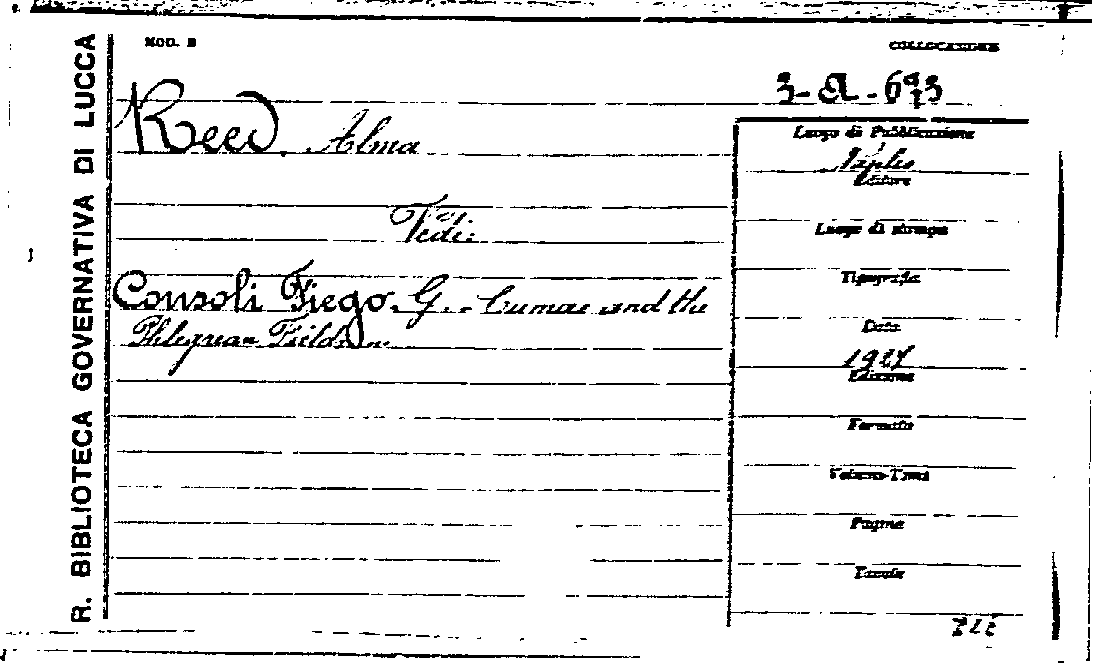 R. BIBLIOTECA GOVERNATIVA DI LUCCA
MOD. B
COLLOCAZIONE
3-A-6
Reed, Alma
Vedi:
Consoli Fiego, G. - Cumae and the
Phlegrean Fields...
Luogo di Pubblicazione
Naples
Editore
Luogo di stampa
Tipografia
Data
Edizione
Formato
Volume-Tomi
Pagine
Tavole